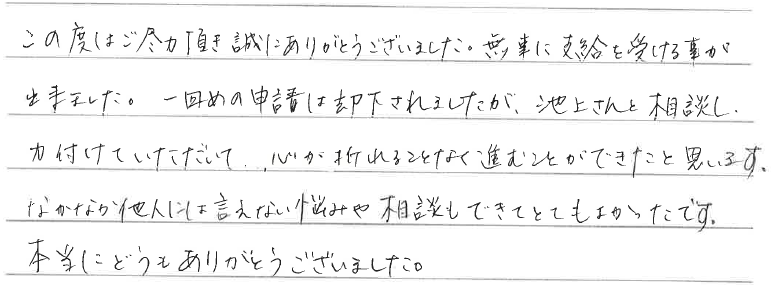 この度はご尽力頂き誠にありがとうございました。無事に支給を受ける事が
出来ました。一回めの申請は却下されましたが、池上さんと相談し、
力付けていただいて、心が折れることなく進むことができたと思います。
なかなか他人には言えない悩みや相談もできてとてもよかったです。
本当にどうもありがとうございました。